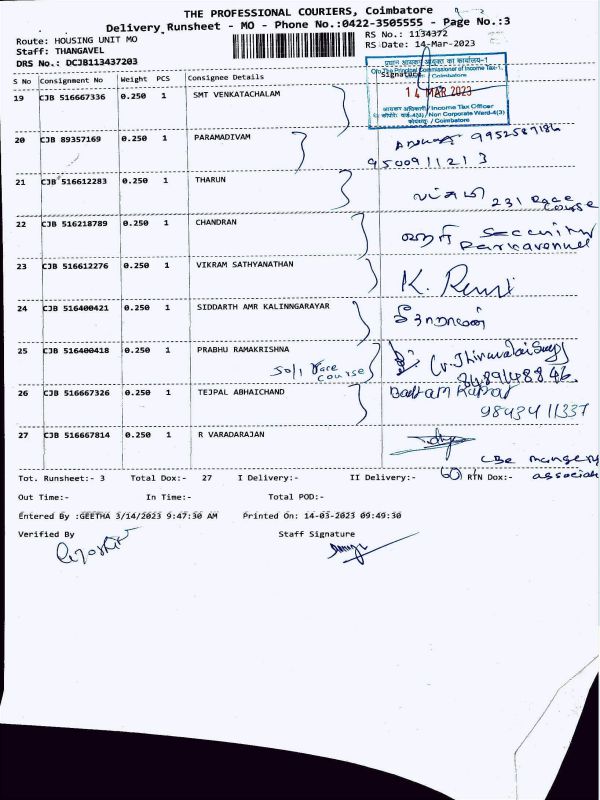 THE PROFESSIONAL COURIERS, Coimbatore
Delivery Runsheet - MO - Phone No.:0422-3505555 - Page No.:3
Route: HOUSING UNIT MO
RS No.: 1134372
Staff: THANGAVEL
RS Date: 14-Mar-2023
DRS No.: DCJB113437203
प्रधान आयकर आयुक्त का कार्यालय-1
Principal Commissioner of Income Tax-1,
Coimbatore
14 MAR 2023
आयकर अधिकारी/Income Tax Officer
वार्ड-4(3)/ Non Corporate Ward-4(3)
/ Coimbatore
S No Consignment No Weight PCS Consignee Details Signature
19 CJB 516667336 0.250 1 SMT VENKATACHALAM
20 CJB 89357169 0.250 1 PARAMADIVAM 9952587186
9500911213
21 CJB 516612283 0.250 1 THARUN 231 Race
Course
22 CJB 516218789 0.250 1 CHANDRAN Security
Parkavenue
23 CJB 516612276 0.250 1 VIKRAM SATHYANATHAN K.
24 CJB 516400421 0.250 1 SIDDARTH AMR KALINNGARAYAR
25 CJB 516400418 0.250 1 PRABHU RAMAKRISHNA
50/1 Race
Course
26 CJB 516667326 0.250 1 TEJPAL ABHAICHAND
98434 11337
27 CJB 516667814 0.250 1 R VARADARAJAN
CBE
Tot. Runsheet:- 3 Total Dox:- 27 I Delivery:- II Delivery:- RTN Dox:-
Out Time:- In Time:- Total POD:-
Entered By :GEETHA 3/14/2023 9:47:30 AM Printed On: 14-03-2023 09:49:30
Verified By Staff Signature